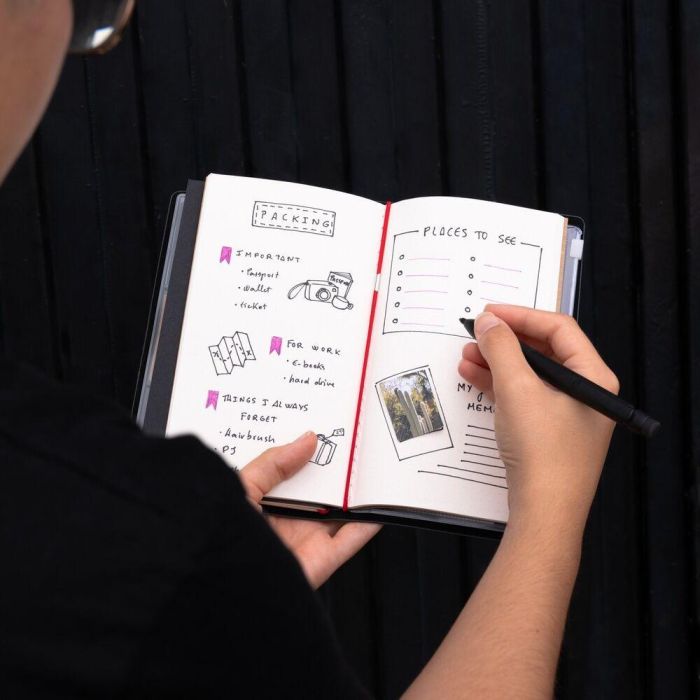 PACKING
IMPORTANT
• Passport
• wallet
• ticket
PASSPORT
FOR WORK
• E-books
• hard drive
THINGS I ALWAYS
FORGET
• hairbrush
• PJ
PLACES TO SEE
MY
MEM